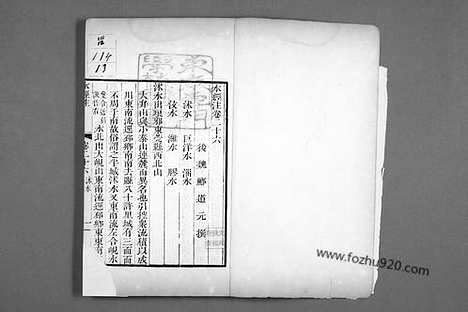 水經注卷二十六
後魏酈道元撰
沭水 巨洋水 淄水
汶水 濰水 膠水
沭水出琅邪東莞縣西北山
大弁山與小泰山連麓而異名也引控衆流積以成
川東南流逕邳鄉南南去縣八十許里城有三面而
不周于南故俗謂之半城沭水又東南流左合峴水
水北出大峴山東南流逕邳鄉東東南
水經注
卷二十六
114
www.fozhu920.com